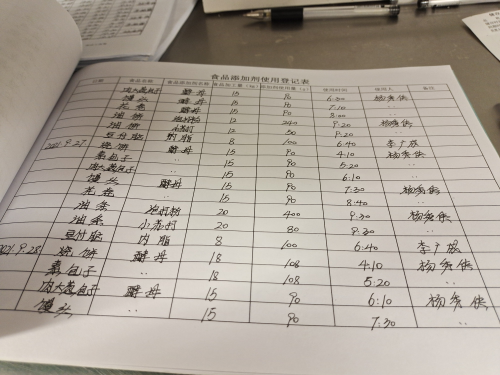 食品添加剂使用登记表
日期 食品名称 食品添加剂名称 食品加工量（kg） 添加剂使用量（g） 使用时间 使用人 备注
肉大葱包子 酵母 15 90 6:30 杨秀侠
馒头 酵母 15 90 7:10 ..
花卷 酵母 15 90 8:00
油饼 泡打粉 12 240 9:20 杨秀侠
油饼 小苏打 12 50 9:20 ..
豆腐脑 内脂 8 100 6:40 李广根
2021.9.27 烧饼 酵母 15 90 4:10 杨秀侠
素包子 .. 15 90 5:20 ..
肉大葱包子 .. 15 90 6:10
馒头 酵母 15 90 7:30 杨秀侠
花卷 15 90 8:40 ..
油条 泡打粉 20 400 9:30 杨秀侠
油条 小苏打 20 80 9:30 ..
豆腐脑 内脂 8 100 6:40 李广根
2021.9.28 烧饼 酵母 18 108 4:10 杨秀侠
素包子 .. 18 108 5:20 ..
肉大葱包子 酵母 15 90 6:10 杨秀侠
馒头 .. 15 90 7:30 ..